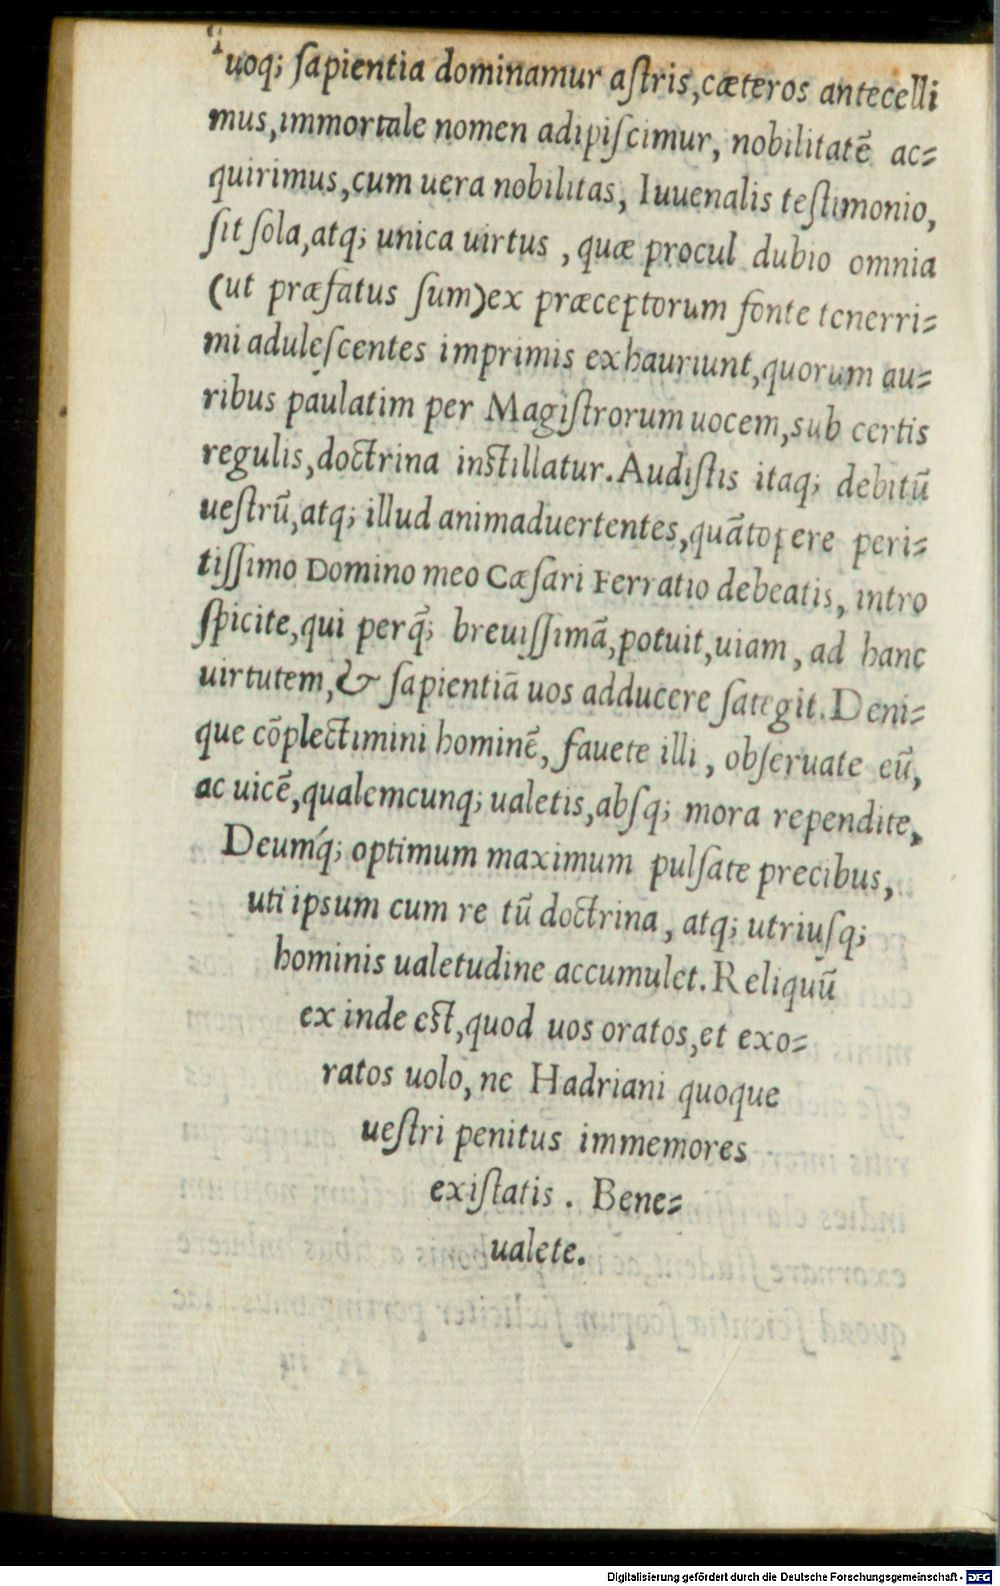 quoq; ſapientia dominamur aſtris,cæteros antecelli
mus,immortale nomen adipiſcimur, nobilitatē ac⸗
quirimus,cum uera nobilitas, Iuuenalis teſtimonio,
ſit ſola,atq; unica uirtus , quæ procul dubio omnia
(ut præfatus ſum)ex præceptorum fonte tenerri⸗
mi aduleſcentes imprimis exhauriunt,quorum au⸗
ribus paulatim per Magiſtrorum uocem,sub certis
regulis,doctrina inſtillatur.Audiſtis itaq; debitū
ueſtrū,atq; illud animaduertentes,quātopere peri⸗
tiſſimo Domino meo Cæſari Ferratio debeatis, intro
ſpicite,qui perq̃; breuiſſimā,potuit,uiam, ad hanc
uirtutem,& ſapientiā uos adducere ſategit.Deni⸗
que cōplectimini hominē, fauete illi , obſeruate eū,
ac uicē,qualemcunq; ualetis,abſq; mora rependite,
Deumq́; optimum maximum pulſate precibus,
uti ipsum cum re tū doctrina, atq; utriuſq;
hominis ualetudine accumulet.Reliquū
ex inde eſt,quod uos oratos,et exo⸗
ratos uolo, ne Hadriani quoque
ueſtri penitus immemores
exiſtatis . Bene⸗
ualete.
Digitalisierung gefördert durch die Deutsche Forschungsgemeinschaft - DFG